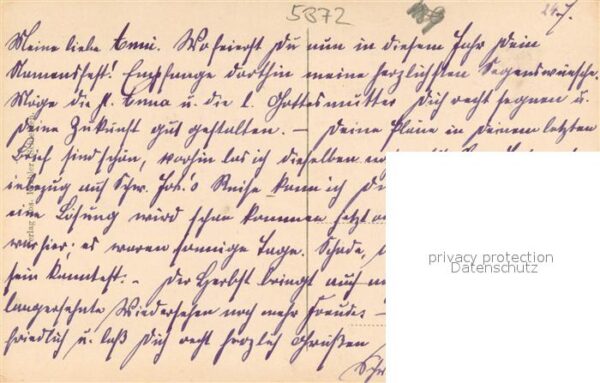 5872
24.7.
Meine liebe Anni. Wo feierst Du nun in diesem Jahr Dein
Namensfest! Empfange dorthin meine herzlichsten Segenswünsche.
Möge die hl. Anna u. die l. Gottesmutter Dich recht segnen u.
Deine Zukunft gut gestalten. — Deine Pläne in Deinem letzten
Brief sind schön, las ich dieselben
in bezug auf Schw. Jos.'s Reise kann ich
eine Lösung wird schon kommen jetzt
war hier; es waren sonnige Tage. Schade,
sein konntest. – Der Herbst bringt auch
langersehnte Wiedersehen noch mehr Freude. –
friedlich u. laß Dich recht herzlich grüßen
privacy protection
Datenschutz